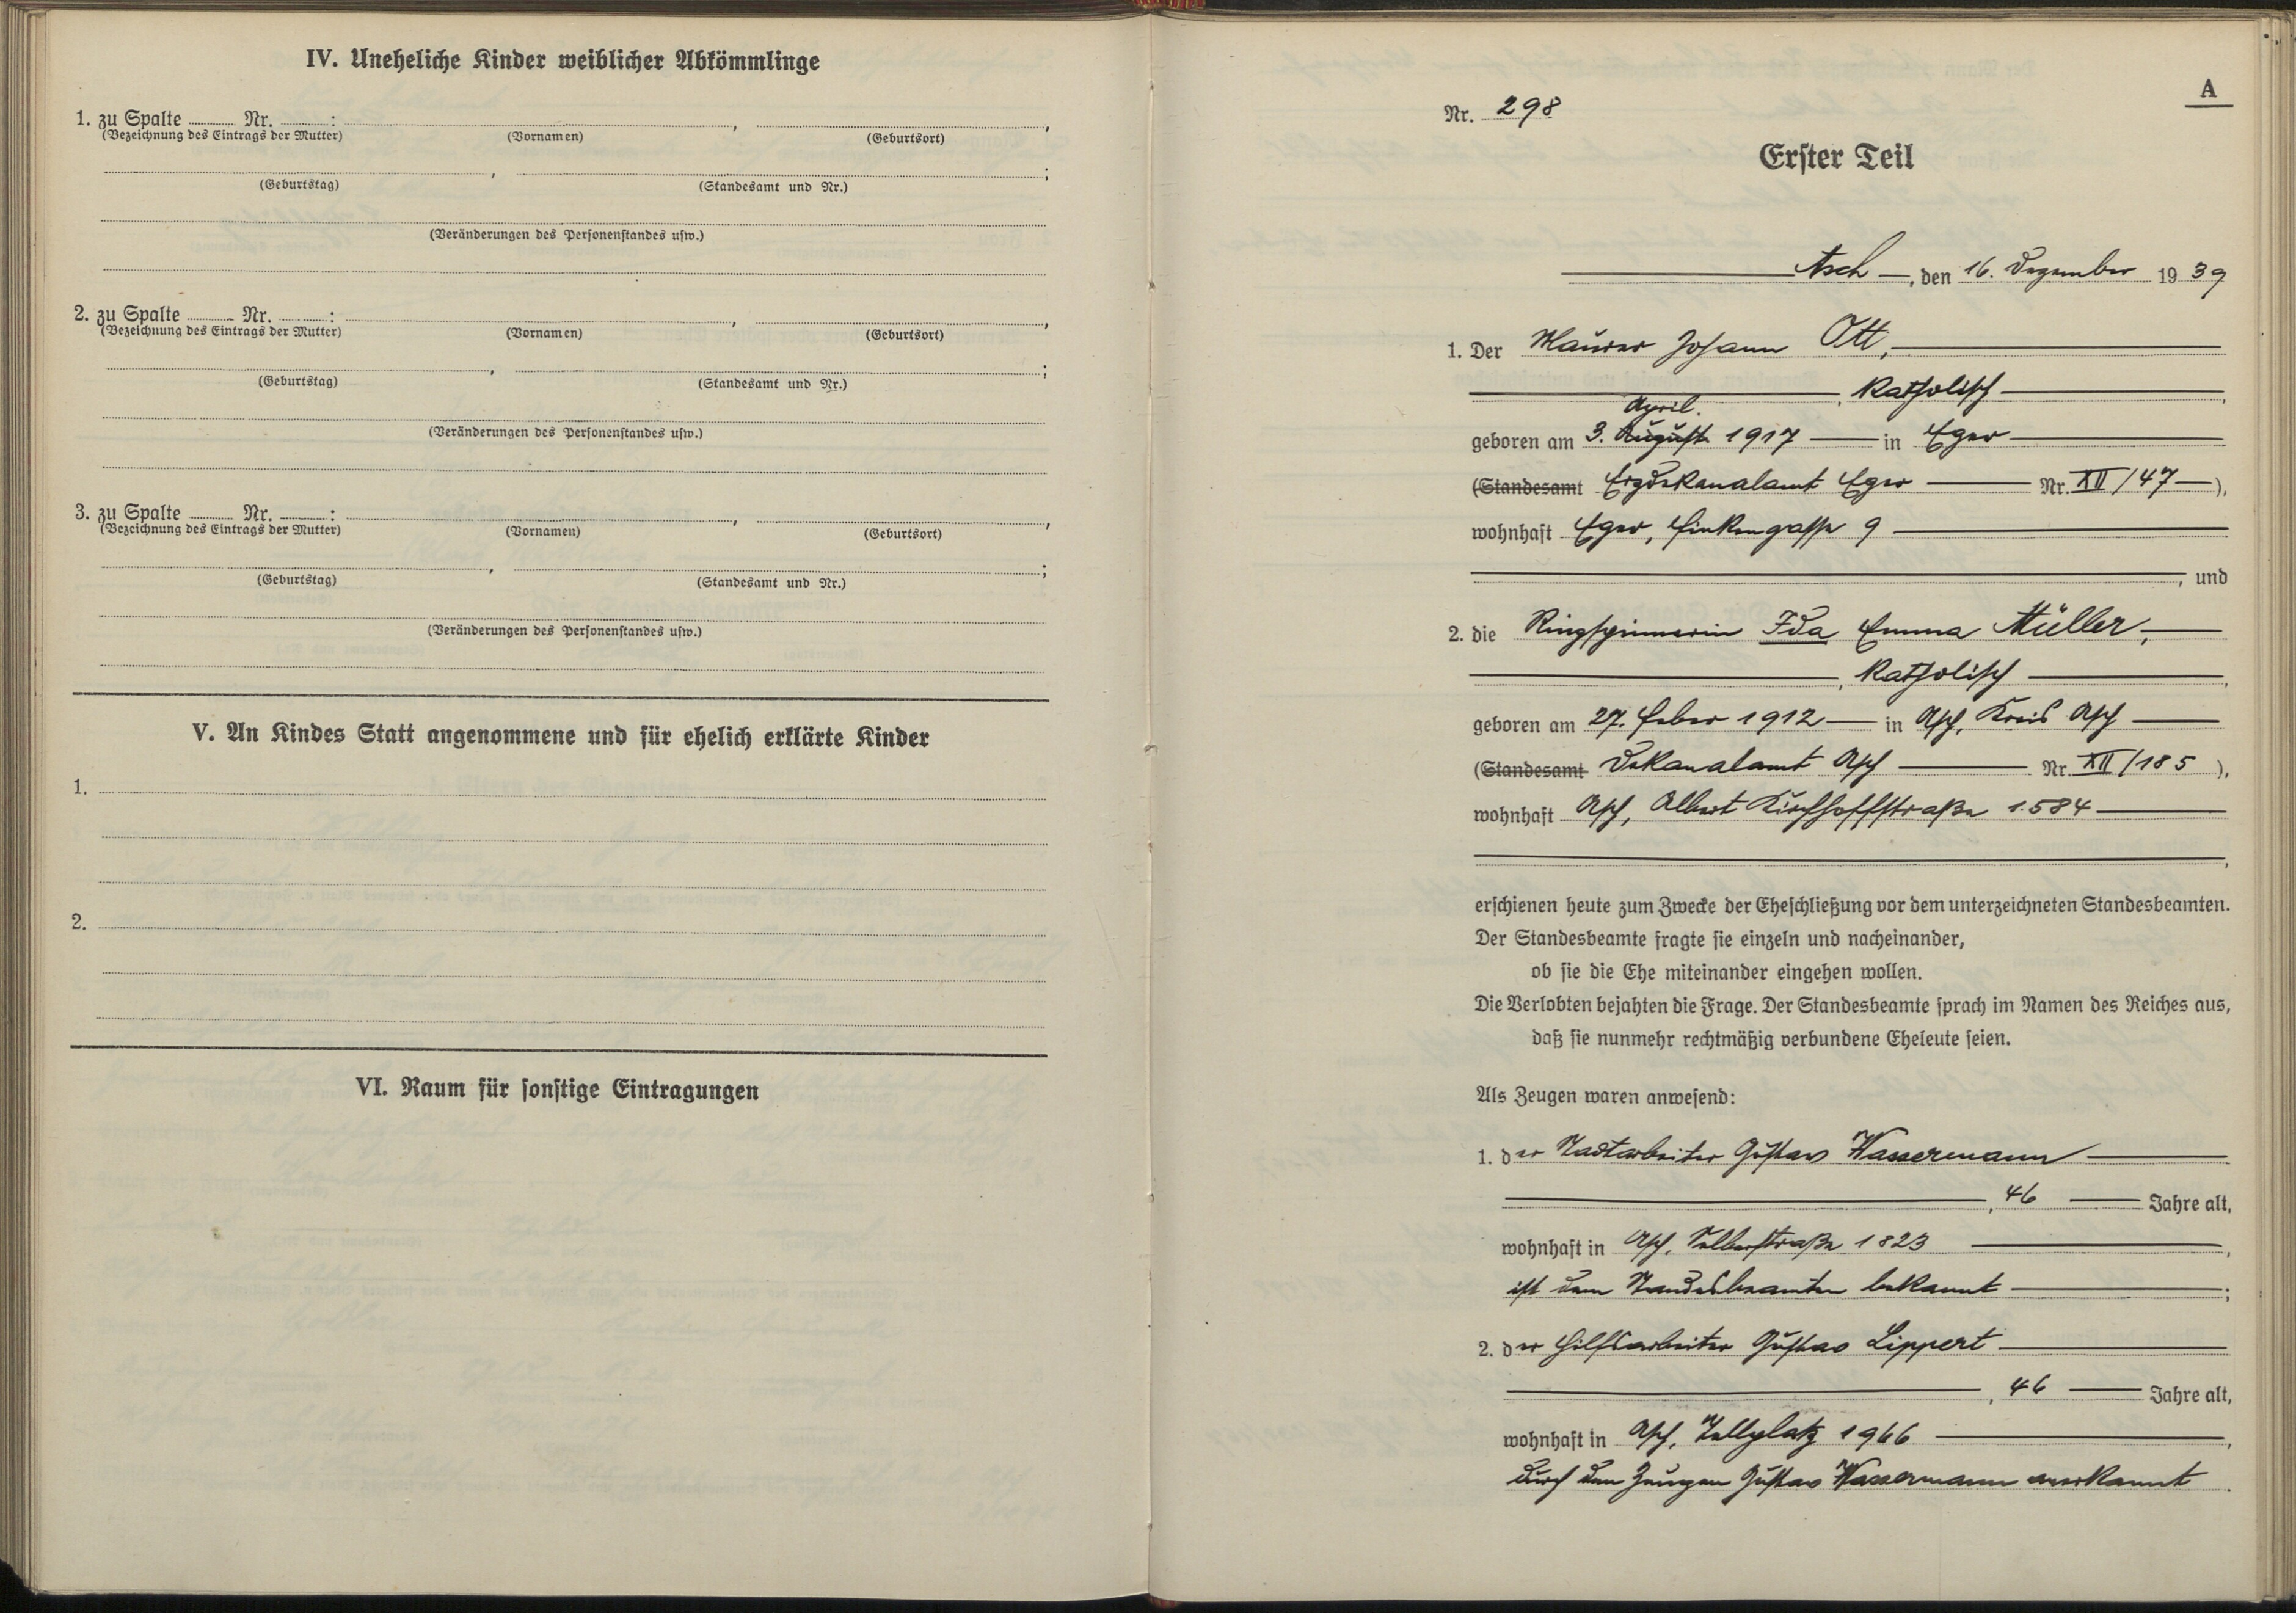 IV. Uneheliche Kinder weiblicher Abkömmlinge
1. zu Spalte ........ Nr. ........ :
(Bezeichnung des Eintrags der Mutter) (Vornamen) (Geburtsort)
(Geburtstag) (Standesamt und Nr.)
(Veränderungen des Personenstandes usw.)
2. zu Spalte ........ Nr. ........ :
(Bezeichnung des Eintrags der Mutter) (Vornamen) (Geburtsort)
(Geburtstag) (Standesamt und Nr.)
(Veränderungen des Personenstandes usw.)
3. zu Spalte ........ Nr. ........ :
(Bezeichnung des Eintrags der Mutter) (Vornamen) (Geburtsort)
(Geburtstag) (Standesamt und Nr.)
(Veränderungen des Personenstandes usw.)
V. An Kindes Statt angenommene und für ehelich erklärte Kinder
1.
2.
VI. Raum für sonstige Eintragungen
A
Nr. 298
Erster Teil
Asch, den 16. Dezember 1939
1. Der Maurer Johann Ott,
, katholisch,
April.
geboren am 3. August 1917 in Eger
(Standesamt Erzdekanalamt Eger Nr. XII/47),
wohnhaft Eger, Finkengasse 9
, und
2. die Ringspinnerin Ida Emma Müller,
, katholisch,
geboren am 27. Feber 1912 in Asch, Kreis Asch
(Standesamt Dekanalamt Asch Nr. XII/185),
wohnhaft Asch, Albert Kirchhoffstraße 1584
,
erschienen heute zum Zwecke der Eheschließung vor dem unterzeichneten Standesbeamten.
Der Standesbeamte fragte sie einzeln und nacheinander,
ob sie die Ehe miteinander eingehen wollen.
Die Verlobten bejahten die Frage. Der Standesbeamte sprach im Namen des Reiches aus,
daß sie nunmehr rechtmäßig verbundene Eheleute seien.
Als Zeugen waren anwesend:
1. der Stadtarbeiter Gustav Wassermann
, 46 Jahre alt,
wohnhaft in Asch, 1823,
ist dem Standesbeamten bekannt;
2. der Hilfsarbeiter Gustav Lippert
, 46 Jahre alt,
wohnhaft in Asch, 1966,
durch den Zeugen Gustav Wassermann anerkannt.